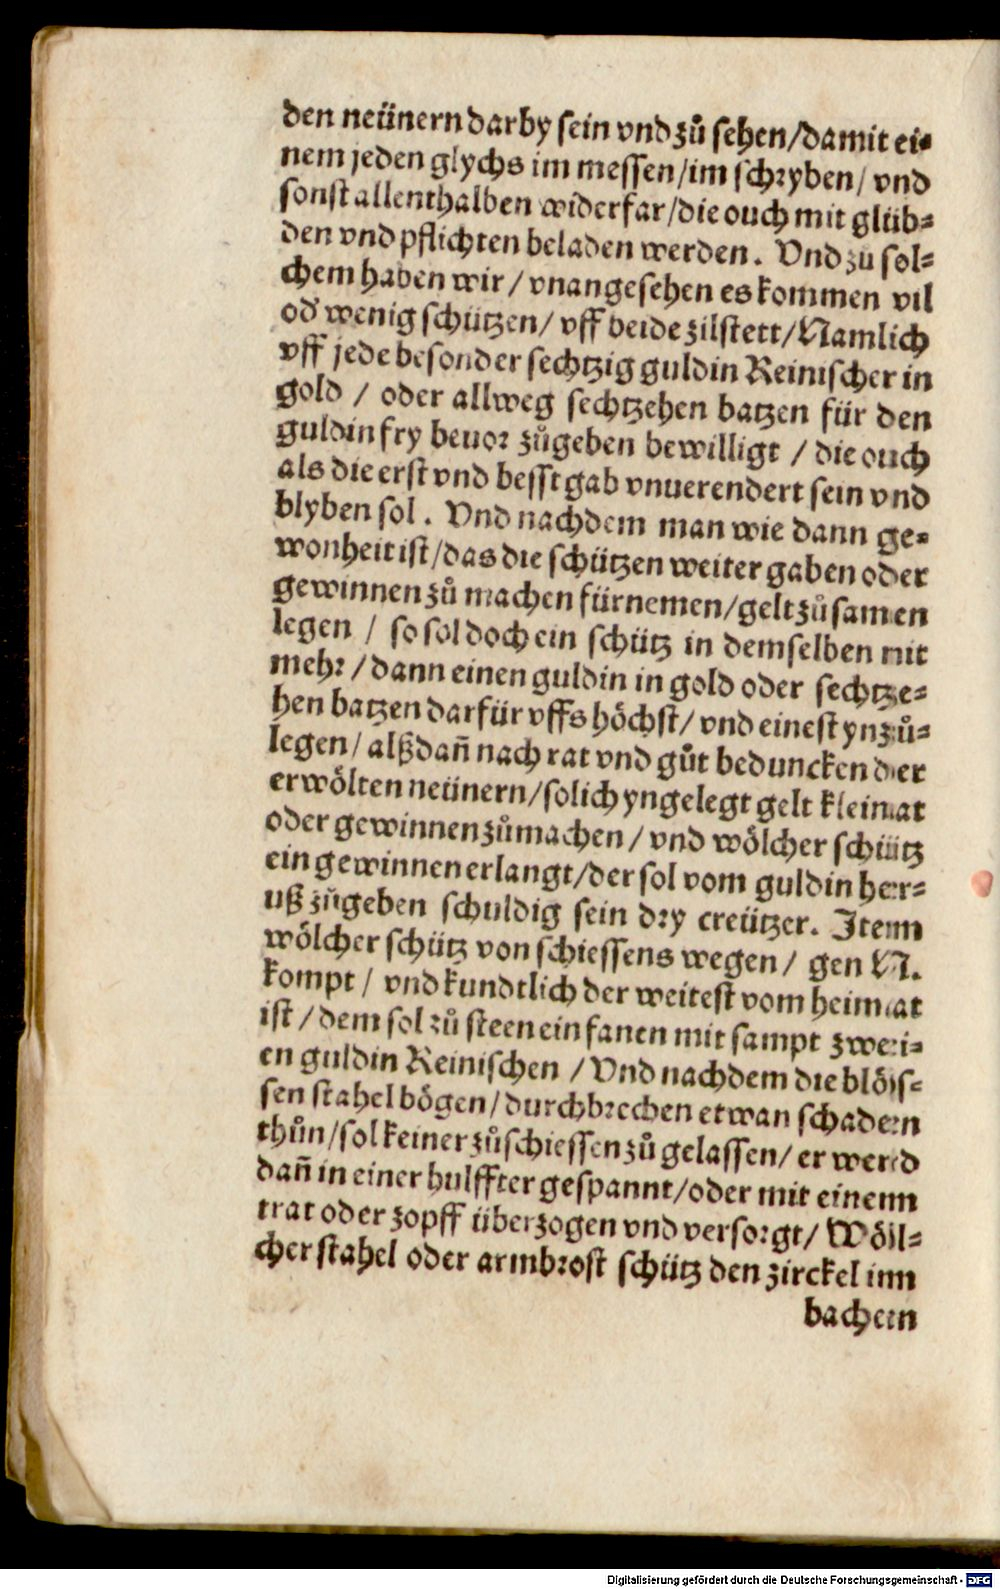 den neünern darby sein vnd zů sehen/damit ei⸗
nem jeden glychs im messen/im schryben/ vnd
sonst allenthalben widerfar/die ouch mit glüb⸗
den vnd pflichten beladen werden. Vnd zu sol⸗
chem haben wir / vnangesehen es kommen vil
od' wenig schützen/ vff beide zilstett/Namlich
vff jede besonder sechtzig guldin Reinischer in
gold / oder allweg sechtzehen batzen für den
guldin fry beuor zůgeben bewilligt / die ouch
als die erst vnd besst gab vnuerendert sein vnd
blyben sol. Vnd nachdem man wie dann ge⸗
wonheit ist/das die schützen weiter gaben oder
gewinnen zů machen fürnemen/gelt zůsamen
legen / so sol doch ein schütz in demselben nit
mehr/dann einen guldin in gold oder sechtze⸗
hen batzen darfür vffs höchst/ vnd einest ynzů⸗
legen/ alßdañ nach rat vnd gůt beduncken der
erwölten neünern/solich yngelegt gelt kleinat
oder gewinnen zůmachen/ vnd wölcher schütz
ein gewinnen erlangt/der sol vom guldin her⸗
uß zůgeben schuldig sein dry creützer. Item
wölcher schütz von schiessens wegen/ gen N.
kompt/ vnd kundtlich der weitest vom heimat
ist/dem sol zů steen ein fanen mit sampt zwei⸗
en guldin Reinischen /Vnd nachdem die blös⸗
sen stahel bögen/durchbrechen etwan schaden
thůn/sol keiner zůschiessen zů gelassen/ er werd
dañ in einer hulffter gespannt/oder mit einem
trat oder zopff überzogen vnd versorgt/ Wöl⸗
cher stahel oder armbrost schütz den zirckel im
bachen
Digitalisierung gefördert durch die Deutsche Forschungsgemeinschaft - DFG